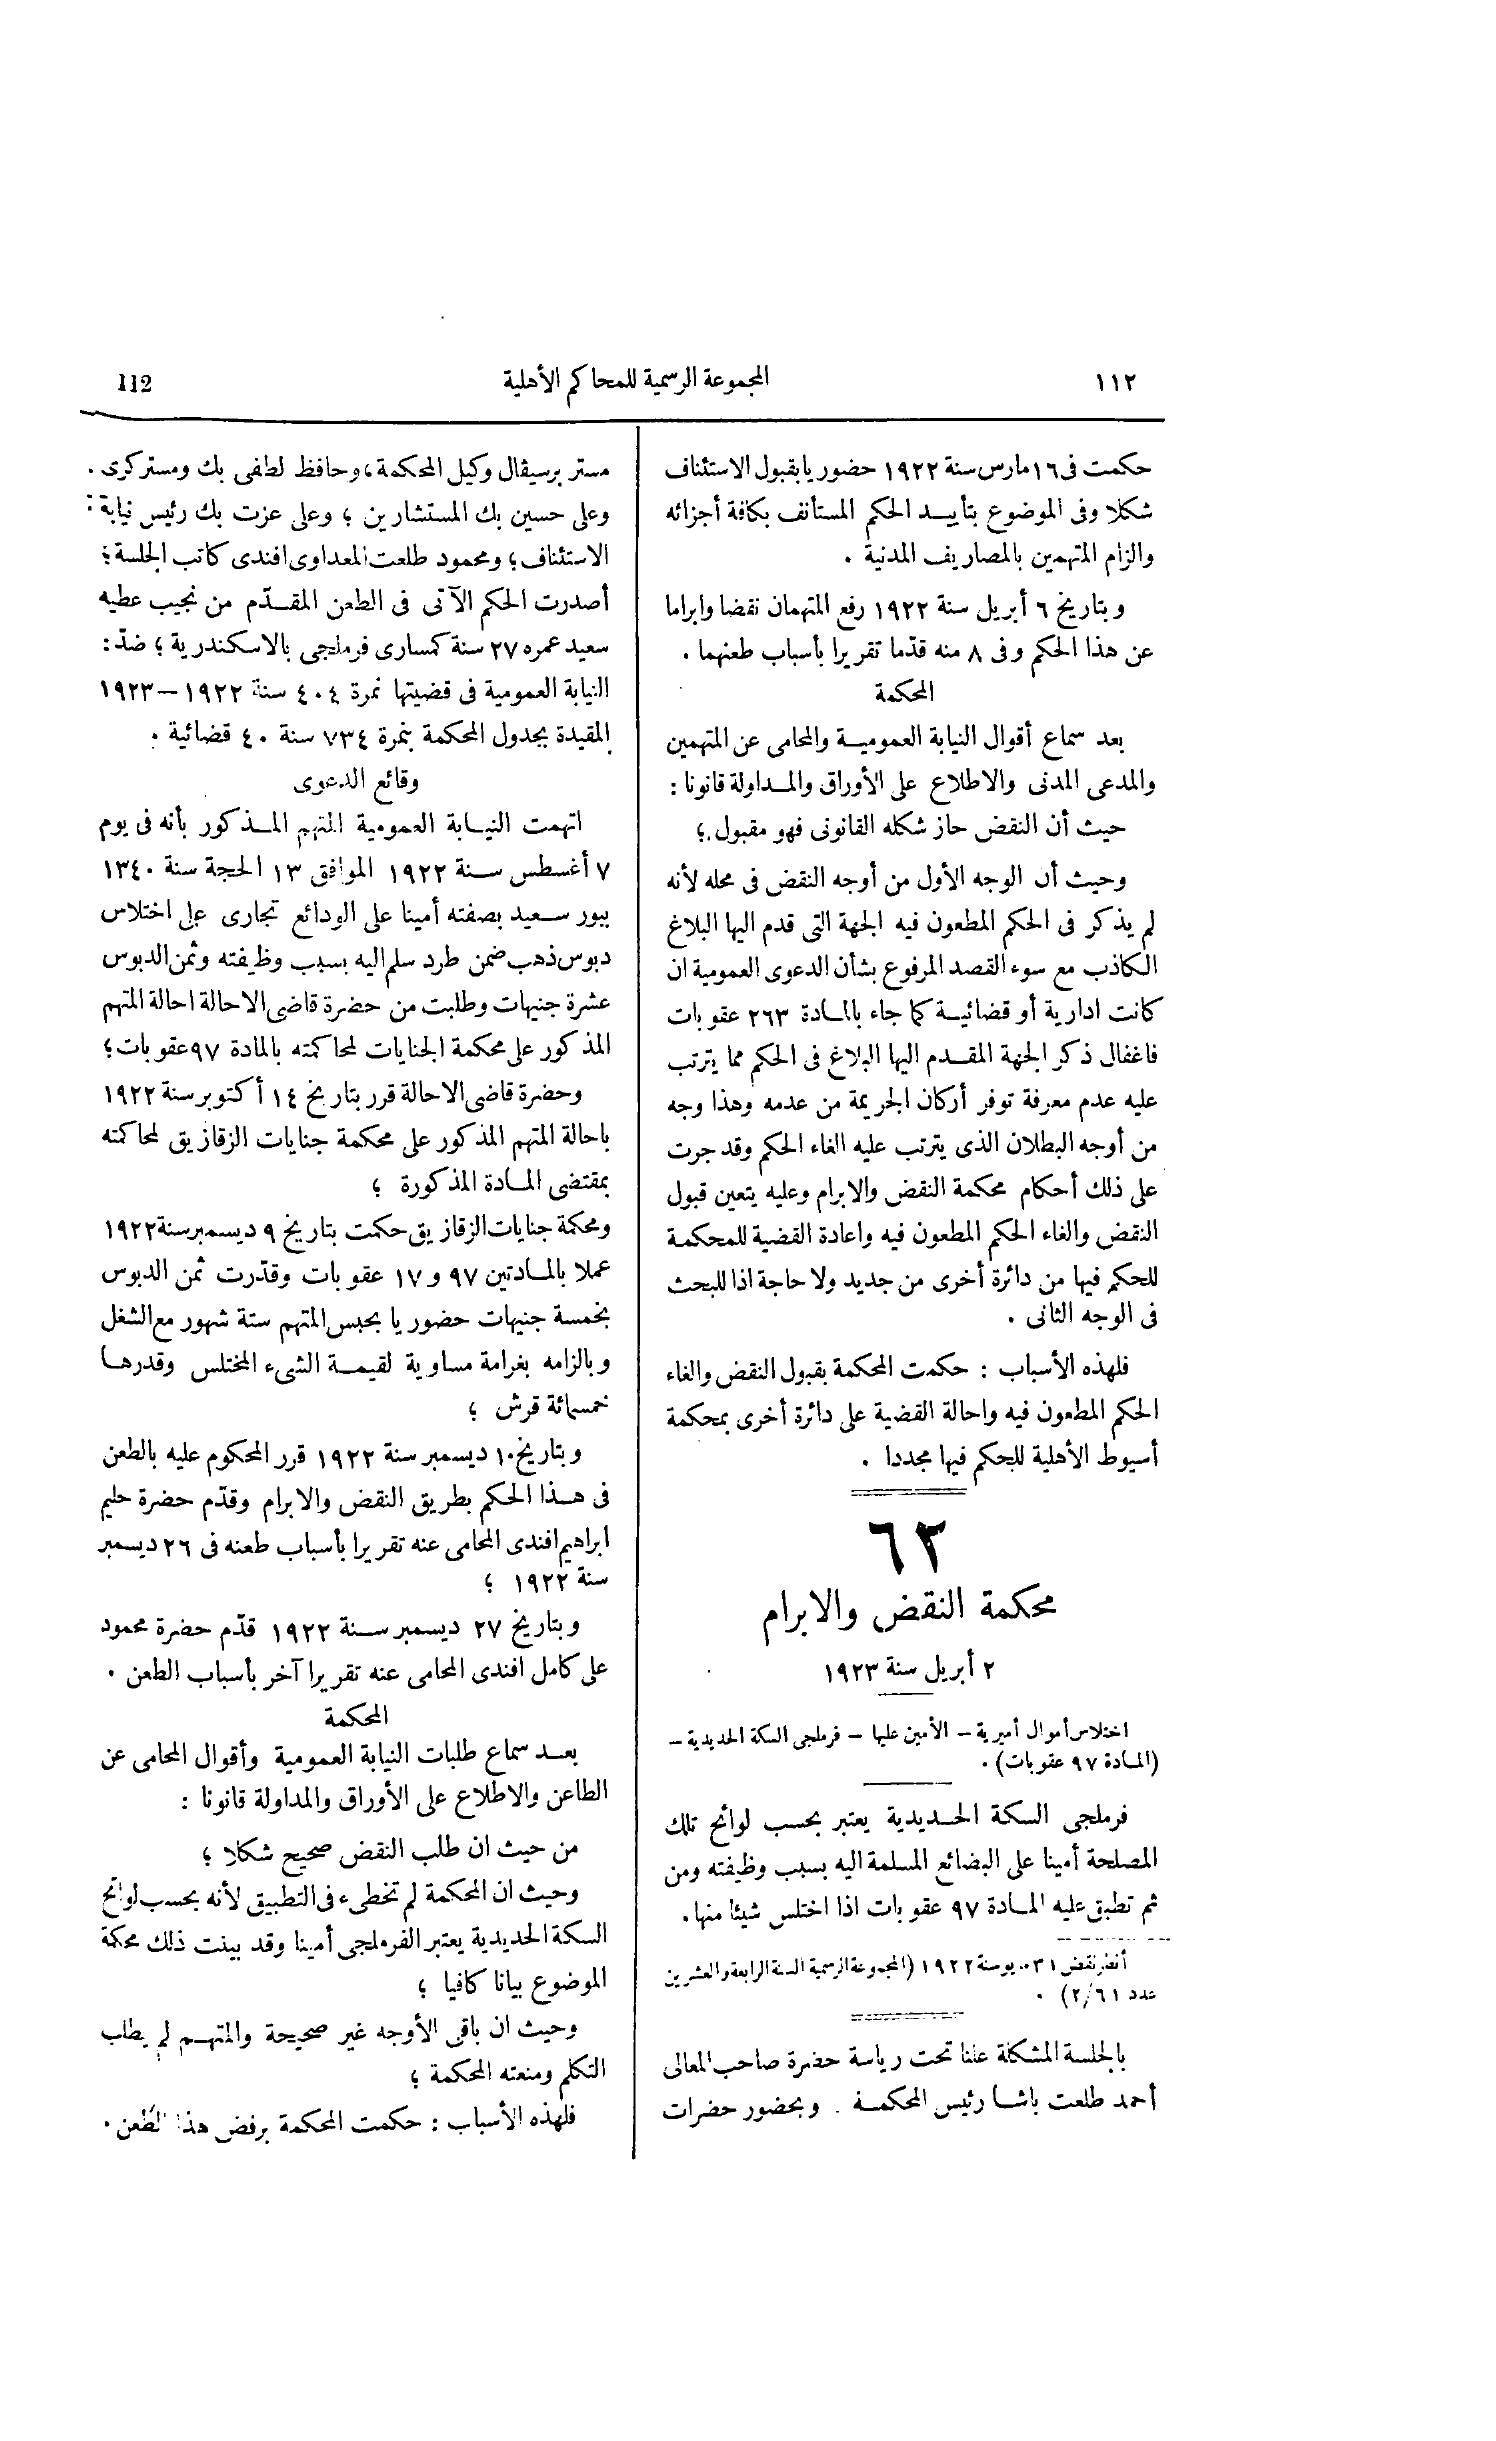 ١١٢
المجموعة الرسمية للمحاكم الأهلية
112
حكمت فى ١٦ مارس سنة ١٩٢٢ حضوريا بقبول الاستئناف
شكلا وفى الموضوع بتأييد الحكم المستأنف بكافة أجزائه
والزام المتهمين بالمصاريف المدنية .
وبتاريخ ٦ أبريل سنة ١٩٢٢ رفع المتهمان نقضا وابراما
عن هذا الحكم وفى ٨ منه قدّما تقريرا بأسباب طعنهما .
المحكمة
بعد سماع أقوال النيابة العمومية والمحامى عن المتهمين
والمدعى المدنى والاطلاع على الأوراق والمداولة قانونا :
حيث أن النقض حاز شكله القانونى فهو مقبول ؛
وحيث أن الوجه الأول من أوجه النقض فى محله لأنه
لم يذكر فى الحكم المطعون فيه الجهة التى قدم اليها البلاغ
الكاذب مع سوء القصد المرفوع بشأن الدعوى العمومية ان
كانت ادارية أو قضائية كما جاء بالمادة ٢٦٣ عقوبات
فاغفال ذكر الجهة المقدم اليها البلاغ فى الحكم مما يترتب
عليه عدم معرفة توفر أركان الجريمة من عدمه وهذا وجه
من أوجه البطلان الذى يترتب عليه الغاء الحكم وقد جرت
على ذلك أحكام محكمة النقض والابرام وعليه يتعين قبول
النقض والغاء الحكم المطعون فيه واعادة القضية للمحكمة
للحكم فيها من دائرة أخرى من جديد ولا حاجة اذا للبحث
فى الوجه الثانى .
فلهذه الأسباب : حكمت المحكمة بقبول النقض والغاء
الحكم المطعون فيه واحالة القضية على دائرة أخرى بمحكمة
أسيوط الأهلية للحكم فيها مجددا .
٦٣
محكمة النقض والابرام
٢ أبريل سنة ١٩٢٣
اختلاس أموال أميرية – الأمين عليها – فرملجى السكة الحديدية –
(المادة ٩٧ عقوبات) .
فرملجى السكة الحديدية يعتبر بحسب لوائح تلك
المصلحة أمينا على البضائع المسلمة اليه بسبب وظيفته ومن
ثم تطبق عليه المادة ٩٧ عقوبات اذا اختلس شيئا منها .
أنظر نقض ٣١ سنة ١٩٢٢ (المجموعة الرسمية السنة الرابعة والعشرين
عدد ٢/٦١) .
بالجلسة المشكلة علنا تحت رياسة حضرة صاحب المعالى
أحمد طلعت باشا رئيس المحكمة . وبحضور حضرات
مستر برسيڤال وكيل المحكمة ، وحافظ لطفى بك ومستر كرى .
وعلى حسين بك المستشارين ؛ وعلى عزت بك رئيس نيابة
الاستئناف ؛ ومحمود طلعت المعداوى افندى كاتب الجلسة ؛
أصدرت الحكم الآتى فى الطعن المقدّم من نجيب عطيه
سعيد عمره ٢٧ سنة كمسارى فرملجى بالاسكندرية ؛ ضدّ :
النيابة العمومية فى قضيتها نمرة ٤٠٤ سنة ١٩٢٢ – ١٩٢٣
المقيدة بجدول المحكمة بنمرة ٧٣٤ سنة ٤٠ قضائية .
وقائع الدعوى
اتهمت النيابة العمومية المتهم المذكور بأنه فى يوم
٧ أغسطس سنة ١٩٢٢ الموافق ١٣ الحجة سنة ١٣٤٠
ببور سعيد بصفته أمينا على الودائع تجارى على اختلاس
دبوس ذهب ضمن طرد سلم اليه بسبب وظيفته وثمن الدبوس
عشرة جنيهات وطلبت من حضرة قاضى الاحالة احالة المتهم
المذكور على محكمة الجنايات لمحاكمته بالمادة ٩٧ عقوبات ؛
وحضرة قاضى الاحالة قرر بتاريخ ١٤ أكتوبر سنة ١٩٢٢
باحالة المتهم المذكور على محكمة جنايات الزقازيق لمحاكمته
بمقتضى المادة المذكورة ؛
ومحكمة جنايات الزقازيق حكمت بتاريخ ٩ ديسمبر سنة ١٩٢٢
عملا بالمادتين ٩٧ و ١٧ عقوبات وقدّرت ثمن الدبوس
بخمسة جنيهات حضوريا بحبس المتهم ستة شهور مع الشغل
وبالزامه بغرامة مساوية لقيمة الشىء المختلس وقدرها
خمسمائة قرش ؛
وبتاريخ ١٠ ديسمبر سنة ١٩٢٢ قرر المحكوم عليه بالطعن
فى هذا الحكم بطريق النقض والابرام وقدّم حضرة حليم
ابراهيم افندى المحامى عنه تقريرا بأسباب طعنه فى ٢٦ ديسمبر
سنة ١٩٢٢ ؛
وبتاريخ ٢٧ ديسمبر سنة ١٩٢٢ قدّم حضرة محمود
على كامل افندى المحامى عنه تقريرا آخر بأسباب الطعن .
المحكمة
بعد سماع طلبات النيابة العمومية وأقوال المحامى عن
الطاعن والاطلاع على الأوراق والمداولة قانونا :
من حيث ان طلب النقض صحيح شكلا ؛
وحيث ان المحكمة لم تخطىء فى التطبيق لأنه بحسب لوائح
السكة الحديدية يعتبر الفرملجى أمينا وقد بينت ذلك محكمة
الموضوع بيانا كافيا ؛
وحيث ان باقى الأوجه غير صحيحة والمتهم لم يطلب
التكلم ومنعته المحكمة ؛
فلهذه الأسباب : حكمت المحكمة برفض هذا الطعن .